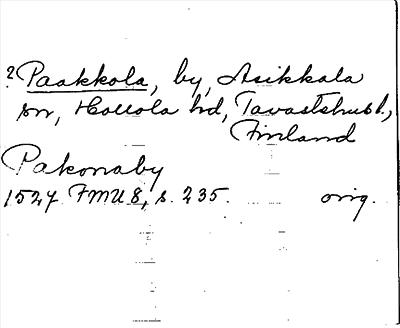 ? Paakkola, by, Asikkala
sn, Hollola hd, Tavastehus l.,
Finland
Pakonaby
1527 FMU 8, s. 235. orig.